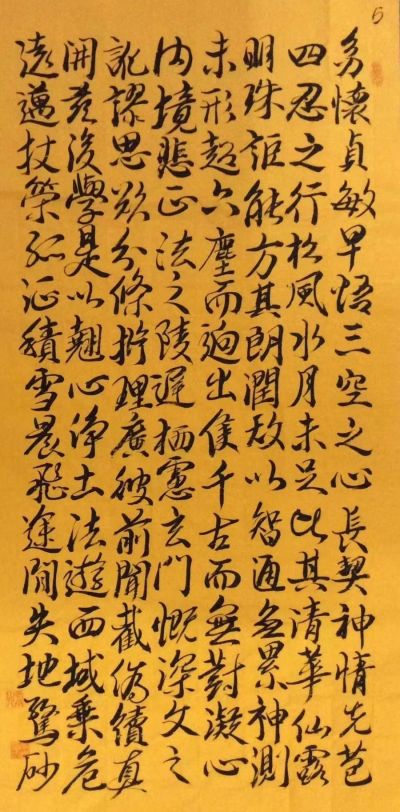 6
幼懷貞敏早悟三空之心長契神情先苞
四忍之行松風水月未足比其清華仙露
明珠詎能方其朗潤故以智通無累神測
未形超六塵而迥出隻千古而無對凝心
內境悲正法之陵遲栖慮玄門慨深文之
訛謬思欲分條析理廣彼前聞截偽續真
開茲後學是以翹心淨土法遊西域乘危
遠邁杖策孤征積雪晨飛途間失地驚砂